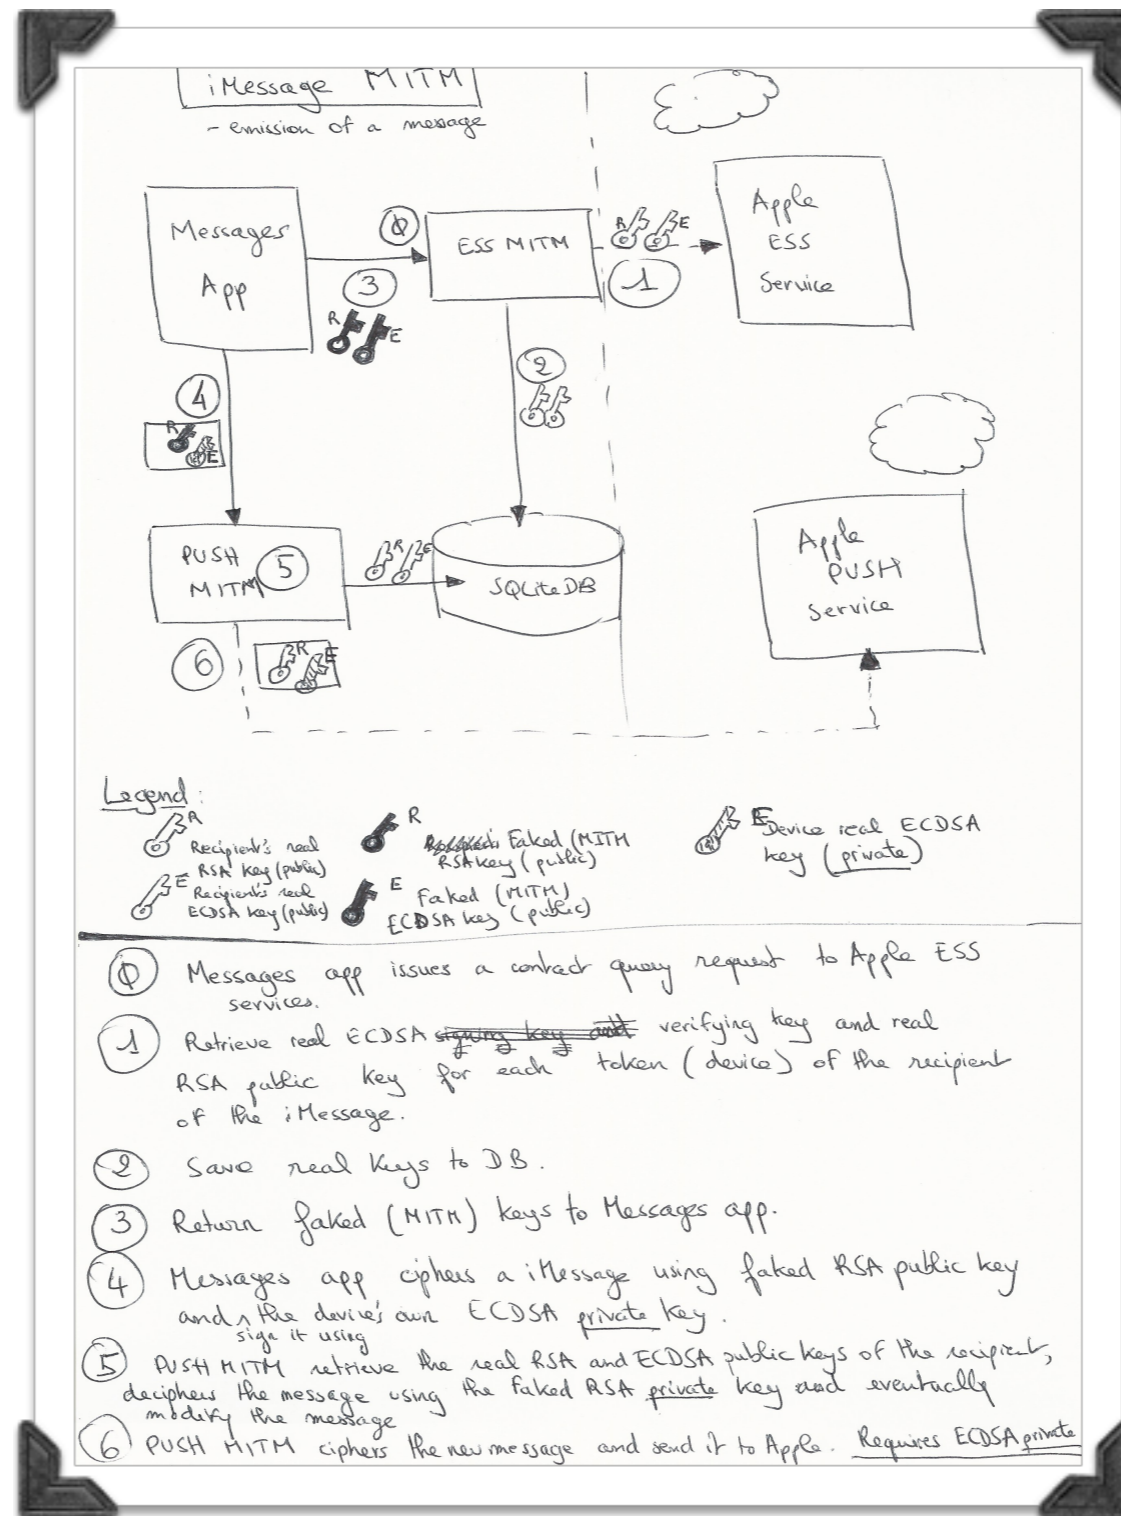 iMessage MITM
- emission of a message
Messages
App
Ø
3
R
E
ESS MITM
R
E
1
Apple
ESS
Service
2
4
R
E
PUSH
MITM
5
R
E
SQLite DB
Apple
PUSH
Service
6
R
E
Legend:
R
Recipient's real
RSA key (public)
E
Recipient's real
ECDSA key (public)
R
Faked (MITM
RSA key (public)
E
Faked (MITM)
ECDSA key (public)
E
Device real ECDSA
key (private)
Ø Messages app issues a contact query request to Apple ESS
services.
1 Retrieve real ECDSA signing key and verifying key and real
RSA public key for each token (device) of the recipient
of the iMessage.
2 Save real keys to DB.
3 Return faked (MITM) keys to Messages app.
4 Messages app ciphers a iMessage using faked RSA public key
and ^ the device's own ECDSA private key.
sign it using
5 PUSH MITM retrieve the real RSA and ECDSA public keys of the recipient,
deciphers the message using the faked RSA private key and eventually
modify the message
6 PUSH MITM ciphers the new message and send it to Apple. Requires ECDSA private